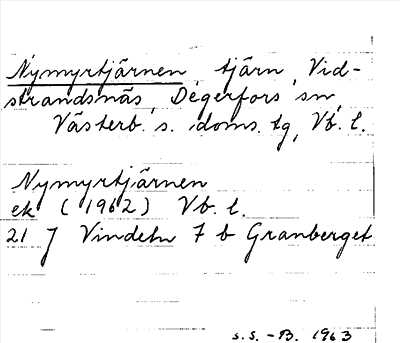 Nymyrtjärnen, tjärn, Vid-
strandsnäs, Degerfors sn,
Västerb. s. doms. tg, Vb. l.
Nymyrtjärnen
ek (1962) Vb. l.
21 J Vindeln 7 b Granberget
s.s. -B. 1963